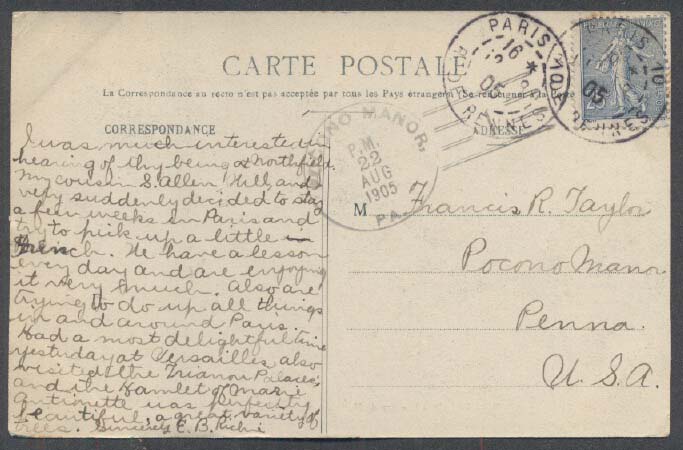 CARTE POSTALE
La Correspondance au recto n'est pas acceptée par tous les Pays étrangers (Se renseigner à la Poste
CORRESPONDANCE
ADRESSE
PARIS 110
16
12 8
05
R. DE RENNES
PARIS 110
05
RENNES
POCONO MANOR,
P.M.
22
AUG
1905
PA.
I was much interested in
hearing of thy being at Northfield.
My cousin S. Allen Hill, and
very suddenly decided to stay
a few weeks in Paris and
try to pick up a little
French. We have a lesson
every day and are enjoying
it very much. Also are
trying to do up all things
in and around Paris.
Had a most delightful time
yesterday at Versailles, also
visited the Trianon Palaces,
and the Hamlet of Marie
Antoinette was perfectly
beautiful, a great variety of
trees. Sincerely E. B. Richie
M Francis R. Taylor
Pocono Manor
Penna.
U.S.A.